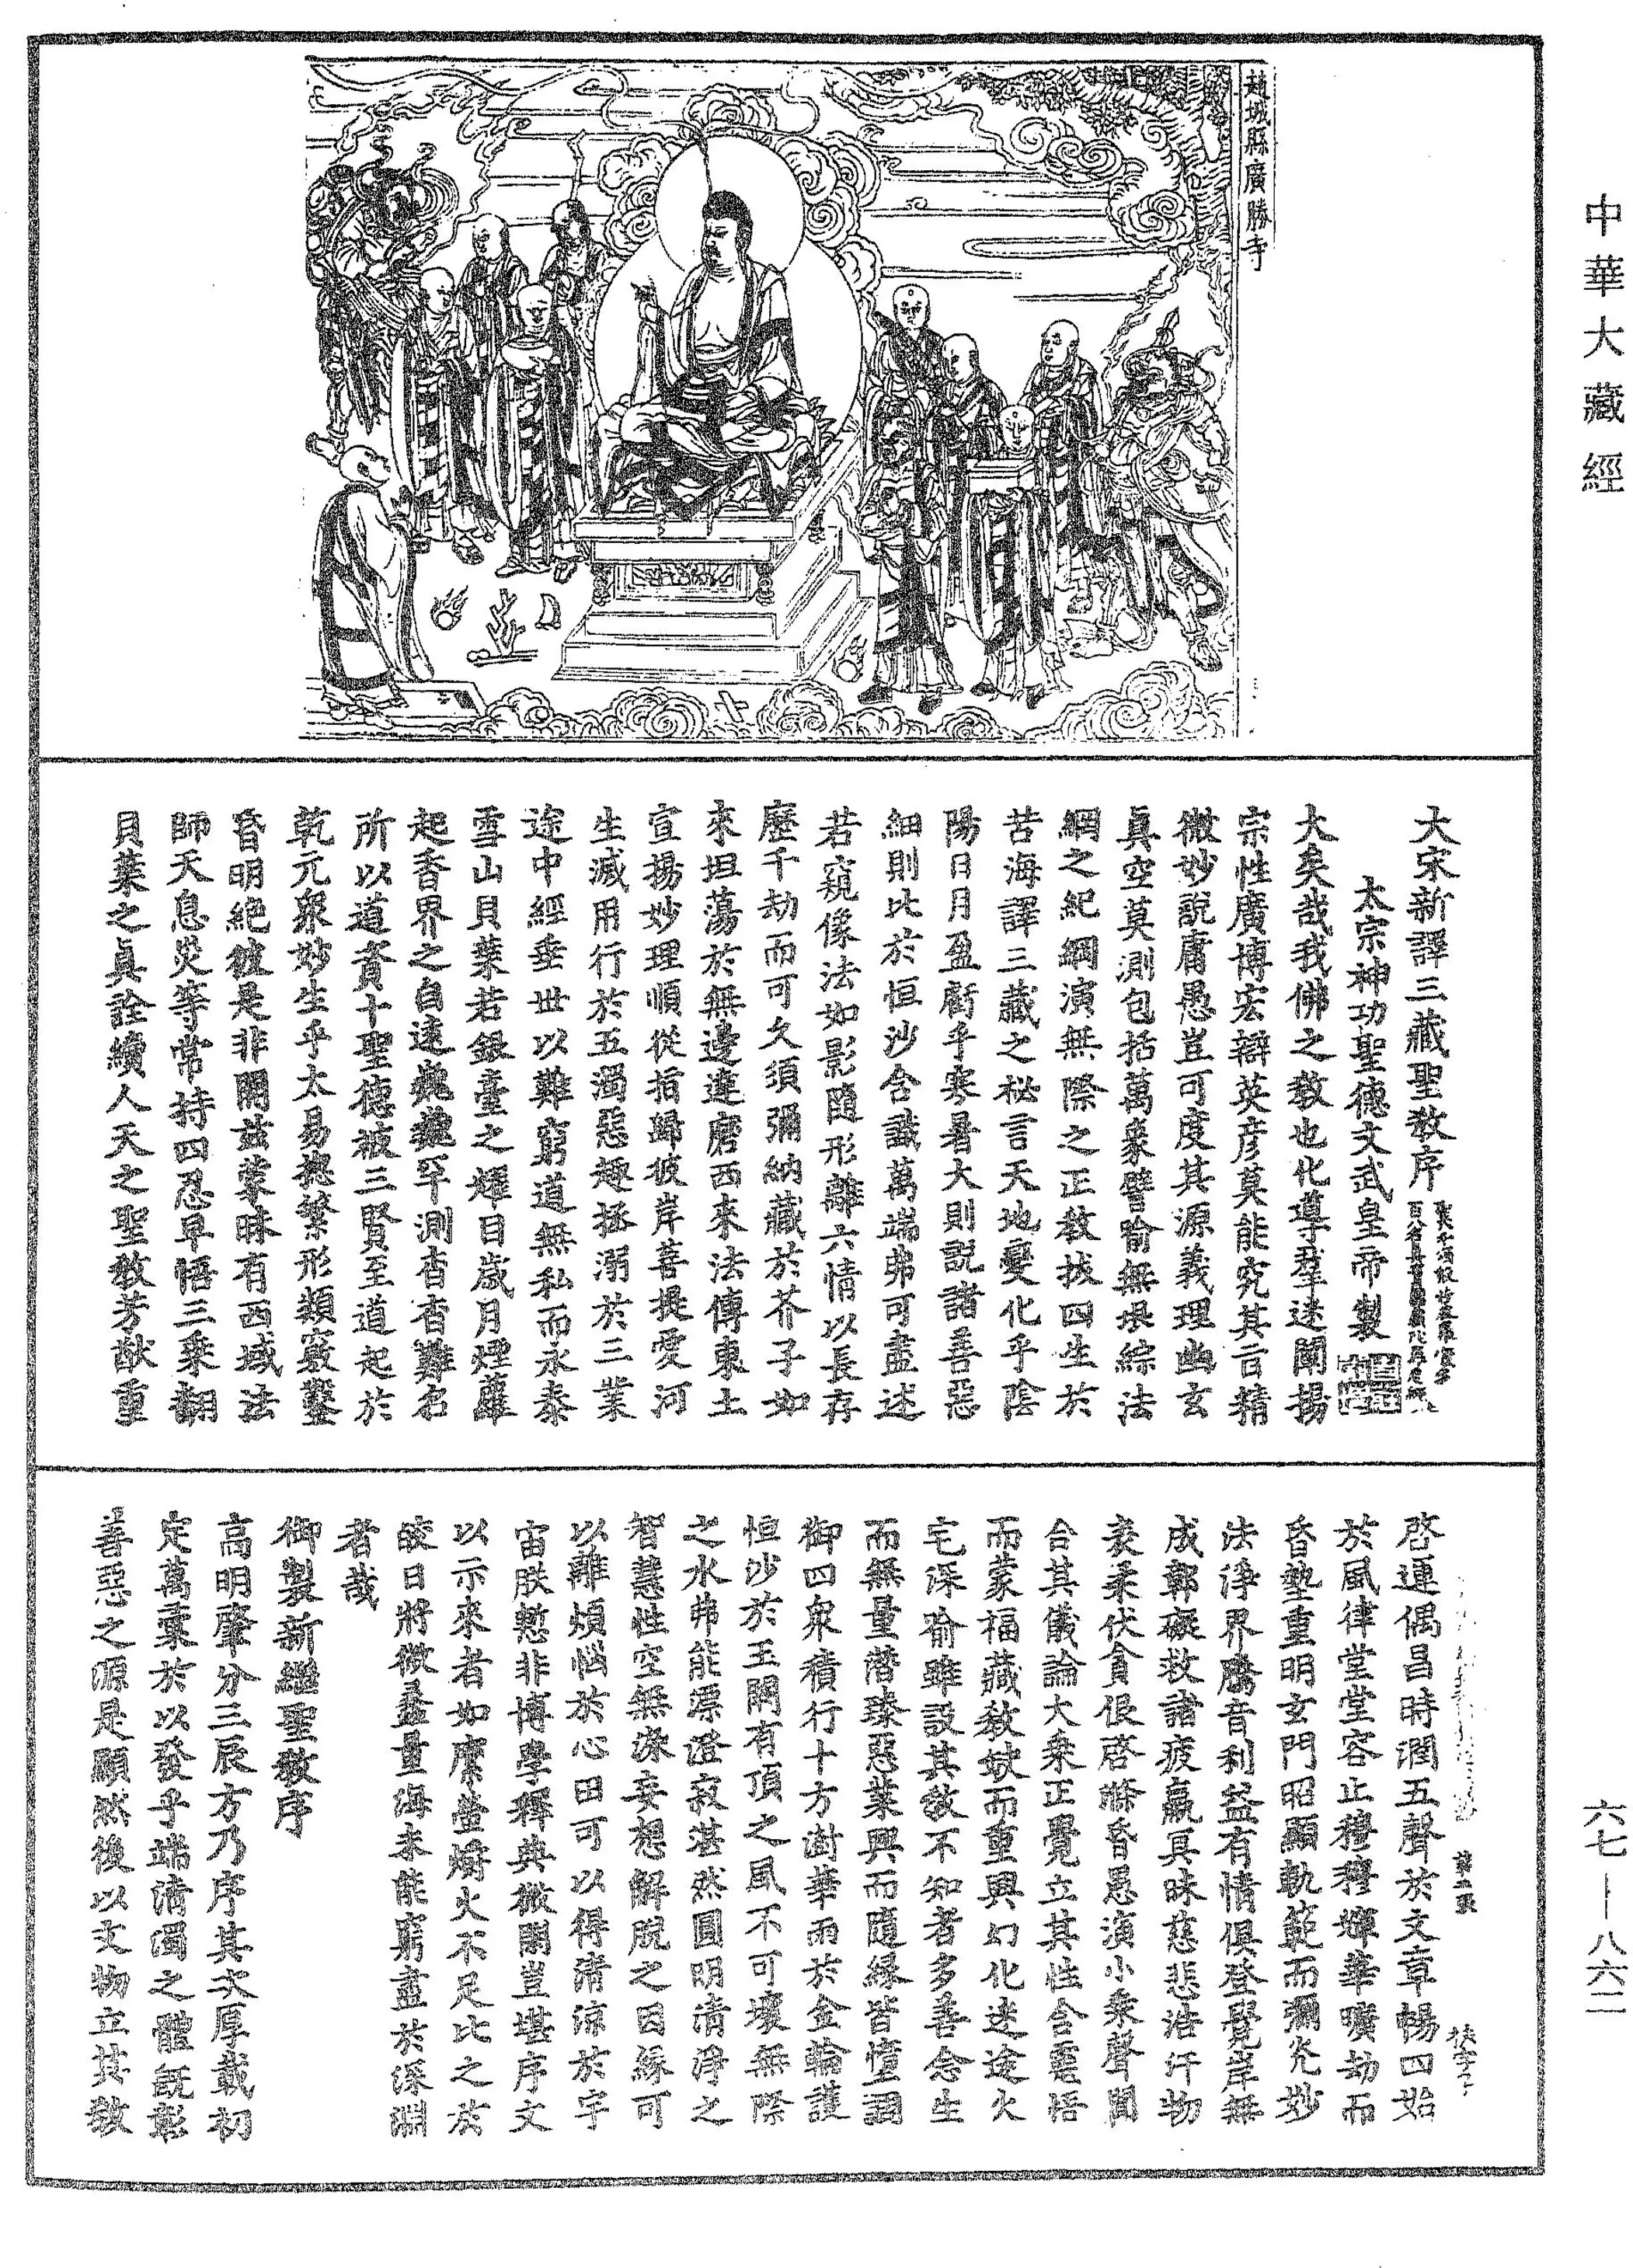 中華大藏經
趙城縣廣勝寺
大宋新譯三藏聖教序
太宗神功聖德文武皇帝製
大矣哉我佛之教也化導羣迷闡揚
宗性廣博宏辯英彦莫能究其旨精
微妙說庸愚豈可度其源義理幽玄
真空莫測包括萬象譬喻無垠綜法
網之紀綱演無際之正教拔四生於
苦海譯三藏之秘言天地變化乎陰
陽日月盈虧乎寒暑大則說諸善惡
細則比於恒沙含識萬端弗可盡述
若窺像法如影隨形離六情以長存
歷千劫而可久須彌納藏於芥子如
來坦蕩於無邊達磨西來法傳東土
宣揚妙理順從指歸彼岸菩提愛河
生滅用行於五濁惡趣拯溺於三業
途中經垂世以難窮道無私而永泰
雪山貝葉若銀臺之耀日歲月煙蘿
起香界之自遠巍巍罕測杳杳難名
所以道資十聖德被三賢至道起於
乾元衆妙生乎太易揔繁形類竅鑿
昏明絶彼是非開茲蒙昧有西域法
師天息災等常持四忍早悟三乘翻
貝葉之真詮續人天之聖教芳猷重
啓運偶昌時潤五聲於文章暢四始
於風律堂堂容止穆穆輝華曠劫而
昏墊重明玄門昭顯軌範而彌光妙
法淨界騰音利益有情俱登覺岸無
成鄣礙救諸疲羸具昧慈悲浩汗物
表柔伏貪佷啓滌昏愚演小乘聲聞
合其儀論大乘正覺立其性含靈悟
而蒙福藏教缺而重興幻化迷途火
宅深喻雖設其教不知者多善念生
而無量潛臻惡業興而隨緣皆憧調
御四衆積行十方澍華雨於金輪護
恒沙於玉闕有頂之風不可壞無際
之水弗能漂澄寂湛然圓明清淨之
智慧性空無染妄想解脫之因緣可
以離煩惱於心田可以得清涼於宇
宙朕慙非博學釋典微閑豈堪序文
以示來者如縻螢爝火不足比之於
皎日將微蠡量海未能窮盡於深淵
者哉
御製新繼聖教序
高明肇分三辰方乃序其次厚載初
定萬彙於以發乎端清濁之體既彰
善惡之源是顯然後以文物立其教
六七—八六二